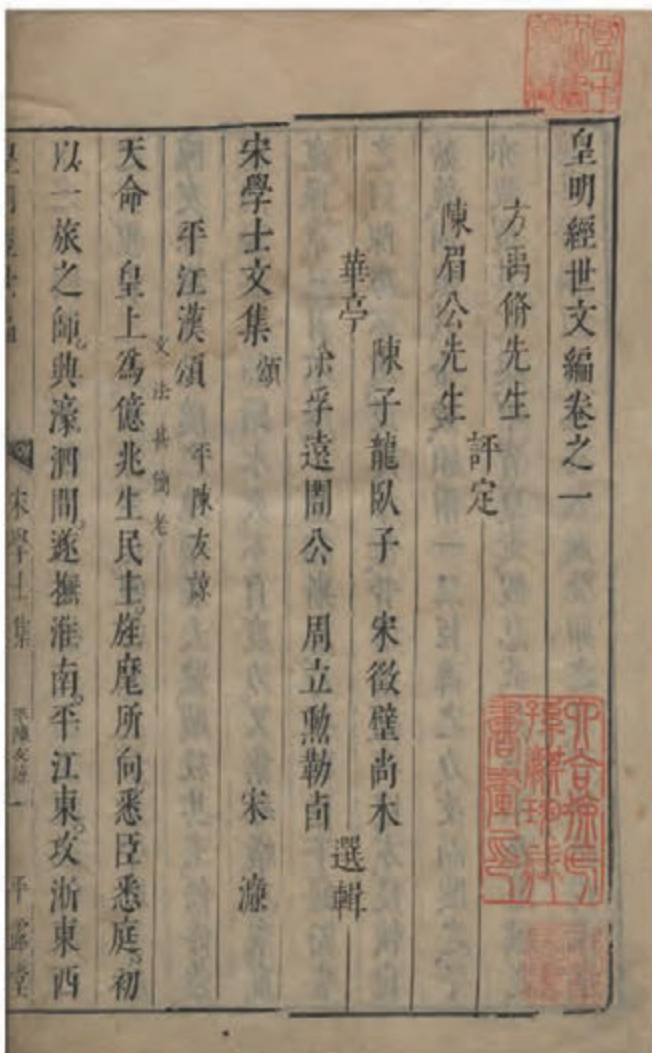 皇明經世文編卷之一
方禹脩先生
陳眉公先生
評定
華亭
陳子龍臥子 宋徵璧尚木
徐孚遠闇公 周立勳勒卣
選輯
宋學士文集 頌 宋濂
平江漢頌 平陳友諒
文法甚簡老
天命 皇上爲億兆生民主旌麾所向悉臣悉庭初
以一旅之師興濠泗間遂撫淮南平江東攻浙東西
宋學士集 平陳友諒 一 平露堂